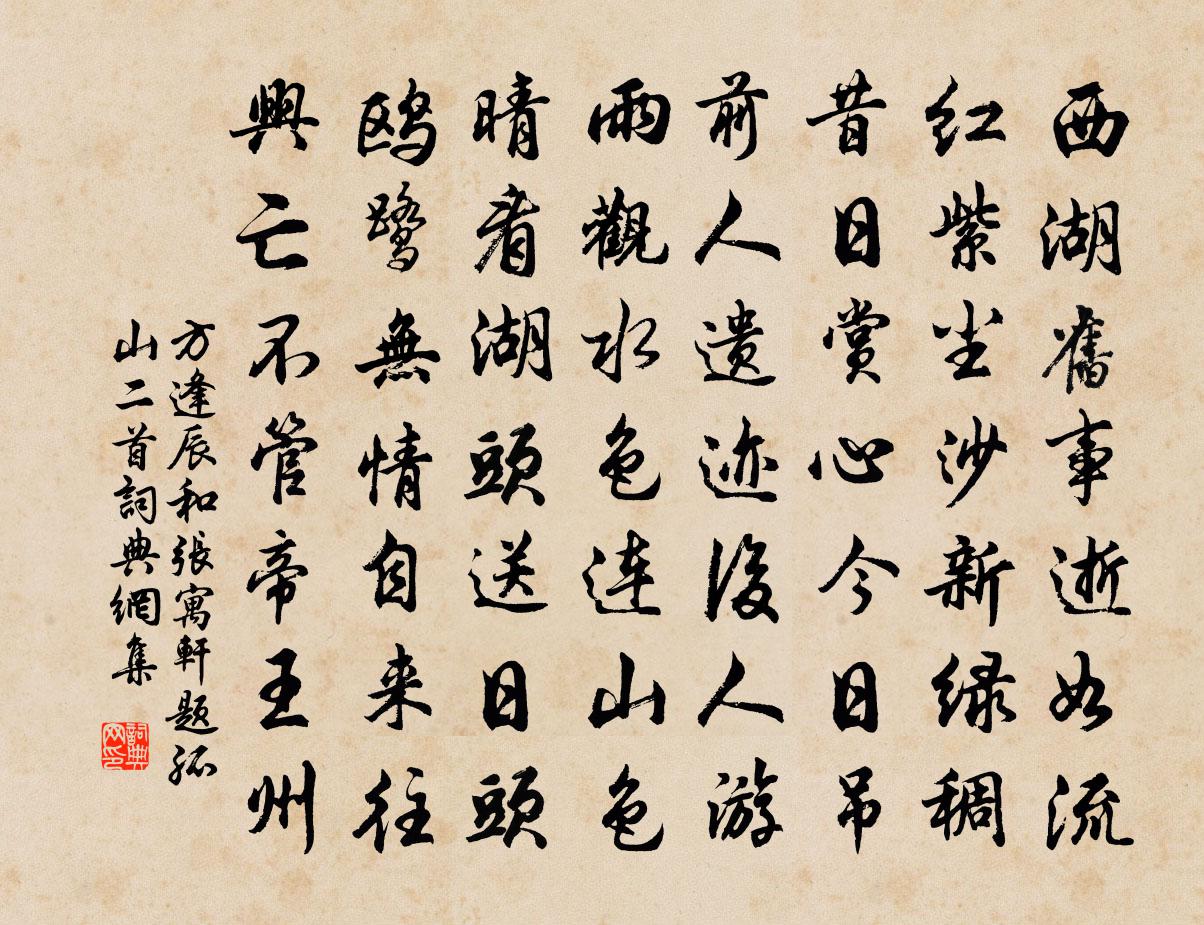 西湖舊事逝如流
红紫尘沙新绿稠
昔日赏心今日吊
前人遗迹後人游
雨觀水色连山色
晴看湖頭送日頭
鸥鹭無情自来往
興亡不管帝王州
方逢辰和張寓軒题孤
山二首詞典網集
詞典
网印